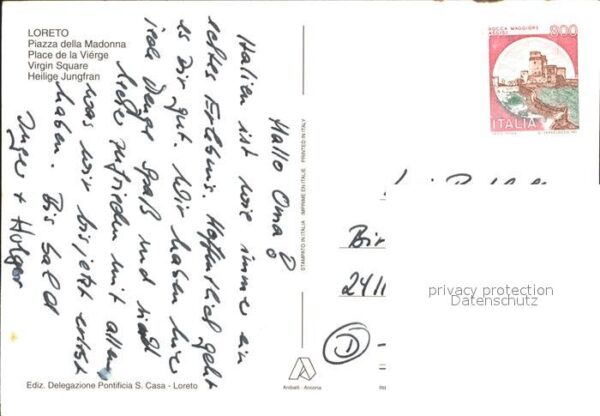 LORETO
Piazza della Madonna
Place de la Viérge
Virgin Square
Heilige Jungfran
Hallo Oma!
Italien ist wie immer ein
echtes Erlebnis. Hoffentlich geht
es Dir gut. Wir haben hier
viele Menge Spaß und sind
sehr zufrieden mit allem
was wir bis jetzt erlebt
haben. Bis bald
Inger + Holger
STAMPATO IN ITALIA IMPRIME EN ITALIE PRINTED IN ITALY
Ediz. Delegazione Pontificia S. Casa - Loreto
Aniballi - Ancona
ROCCA MAGGIORE
ASSISI
800
ITALIA
Bir
24
D
privacy protection
Datenschutz